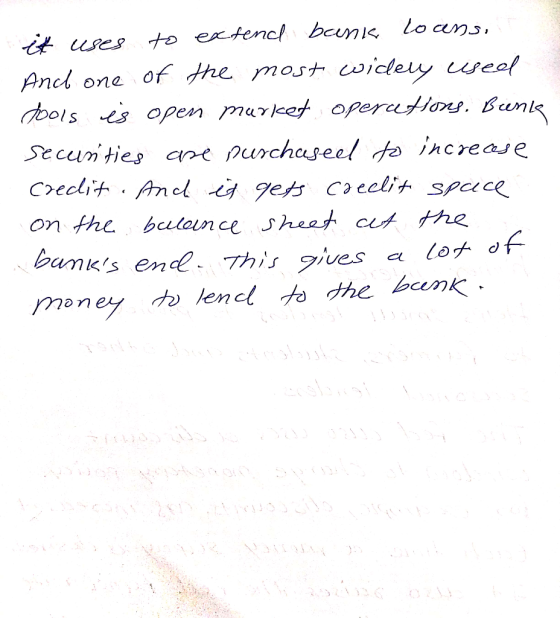 it uses to extend bank loans.
And one of the most widely used
tools is open market operations. Bank
securities are purchased to increase
credit. And it gets credit space
on the balance sheet at the
bank's end. This gives a lot of
money to lend to the bank.